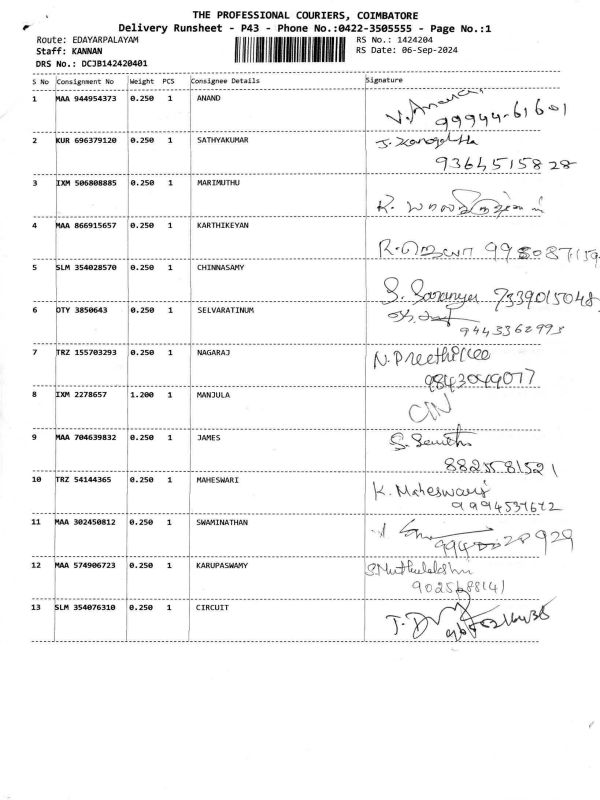 THE PROFESSIONAL COURIERS, COIMBATORE
Delivery Runsheet - P43 - Phone No.:0422-3505555 - Page No.:1
Route: EDAYARPALAYAM RS No.: 1424204
Staff: KANNAN RS Date: 06-Sep-2024
DRS No.: DCJB142420401
S No Consignment No Weight PCS Consignee Details Signature
1 MAA 944954373 0.250 1 ANAND V. Anand
99944-61601
2 KUR 696379120 0.250 1 SATHYAKUMAR
9364515828
3 IXM 506808885 0.250 1 MARIMUTHU R.
4 MAA 866915657 0.250 1 KARTHIKEYAN
5 SLM 354028570 0.250 1 CHINNASAMY S. Saranya 7339015048
6 OTY 3850643 0.250 1 SELVARATINUM
7 TRZ 155703293 0.250 1 NAGARAJ N. Preethi
9843049077
8 IXM 2278657 1.200 1 MANJULA
9 MAA 704639832 0.250 1 JAMES S.
8825581521
10 TRZ 54144365 0.250 1 MAHESWARI K. Maheswari
9994537672
11 MAA 302450812 0.250 1 SWAMINATHAN
12 MAA 574906723 0.250 1 KARUPASWAMY S. Muthulakshmi
9025688141
13 SLM 354076310 0.250 1 CIRCUIT